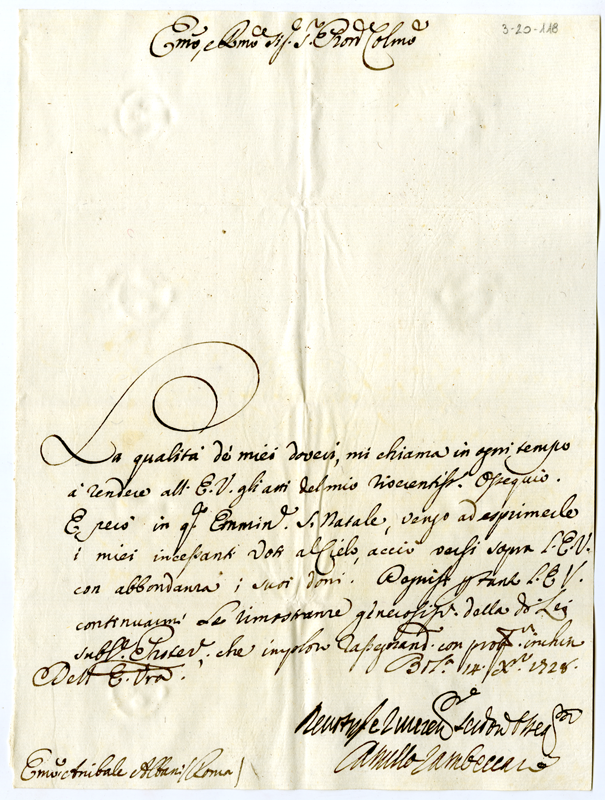 3-20-118
Emo, e Rmo Sig.r S.r Pron Colmo
La qualità de miei doveri, mi chiama in ogni tempo
à rendere all' E. V. gli atti del mio riverentiss.o Ossequio.
E però in q.sta Imminen.e S. Natale, vengo ad esprimerle
i miei incessanti Voti al Cielo, acciò versi sopra l'E. V.
con abbondanza i suoi doni. 
continuarmi le rimostranze generosiss.e della di Lei
che imploro rassegnand. con prof.o inchin
Dell' E. Vra. Bol.a 14 Xbre 1728.
Camillo Zambeccari
Emo Anibale Albani (Roma)